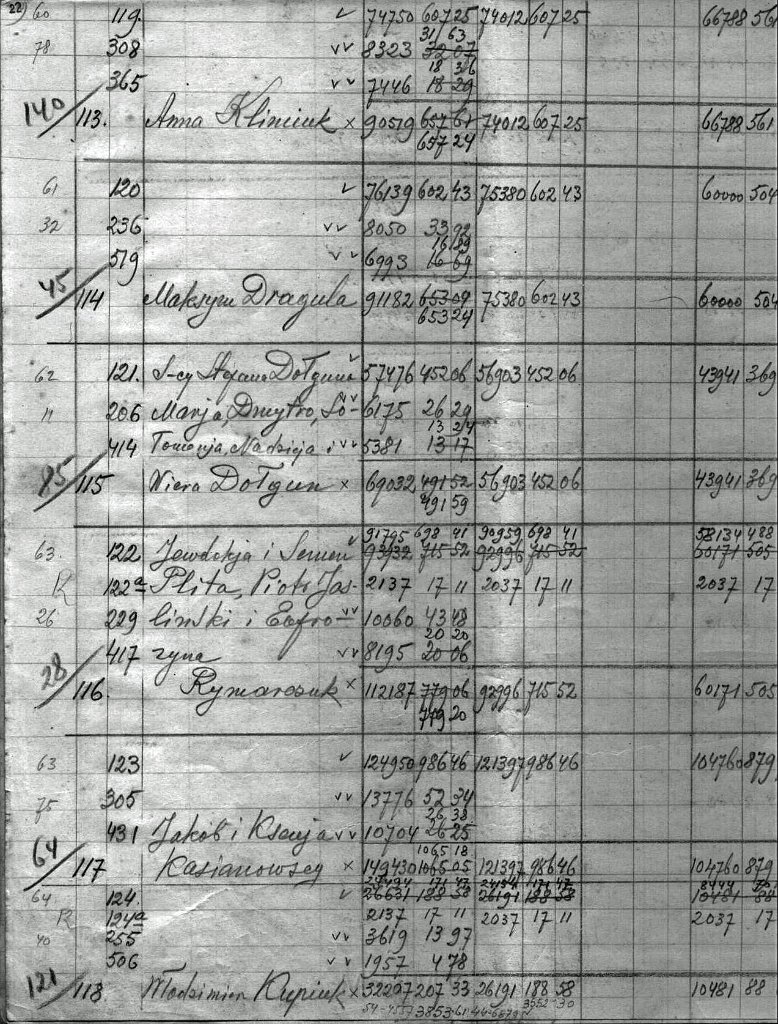 22) 60 119. v 74750 607 25 74012 607 25 66788 561
31 63
78 308 vv 8323 32 07
18 36
365 vv 7446 18 29
140/113. Anna Klimiuk x 90519 657 61 74012 607 25 66788 561
657 24
61 120 v 76139 602 43 75380 602 43 60000 504
32 236 vv 8050 33 92
16 89
519 vv 6993 16 69
45/114 Maksym Dragula 91182 653 04 75380 602 43 60000 504
653 24
62 121. S-cy Stefana Dołguna v 57476 452 06 56903 452 06 43941 369
11 206 Marja, Dmytro, So- vv 6175 26 29
13 24
414 Tomasja, Nadzieja i vv 5381 13 17
85/115 Wiera Dołgun x 69032 491 52 56903 452 06 43941 369
491 59
91795 698 41 90959 698 41 58134 488
63. 122 Jewdokja i Semen v 93932 715 52 92996 715 52 60171 505
R 122a Plita, Piotr Jas- 2137 17 11 2037 17 11 2037 17
26 229 linski i Eufro- vv 10060 43 48
20 20
417 zyna vv 8195 20 06
28/116. Rymarczuk x 112187 779 06 92996 715 52 60171 505
779 20
63 123 v 124950 986 46 121397 986 46 104760 879
75 305 vv 13776 52 34
26 38
431 Jakób i Ksenja vv 10704 26 25
1065 18
64/117 Kasianowscy x 149430 1065 05 121397 986 46 104760 879
24494 171 47 24154 171 47 8444
64 124. v 26631 188 58 26191 188 58 10481 88
R 124a 2137 17 11 2037 17 11 2037 17
40 255 vv 3619 13 97
506 vv 1957 4 78
121/118 Włodzimierz Kupiuk x 32207 207 33 26191 188 58 10481 88